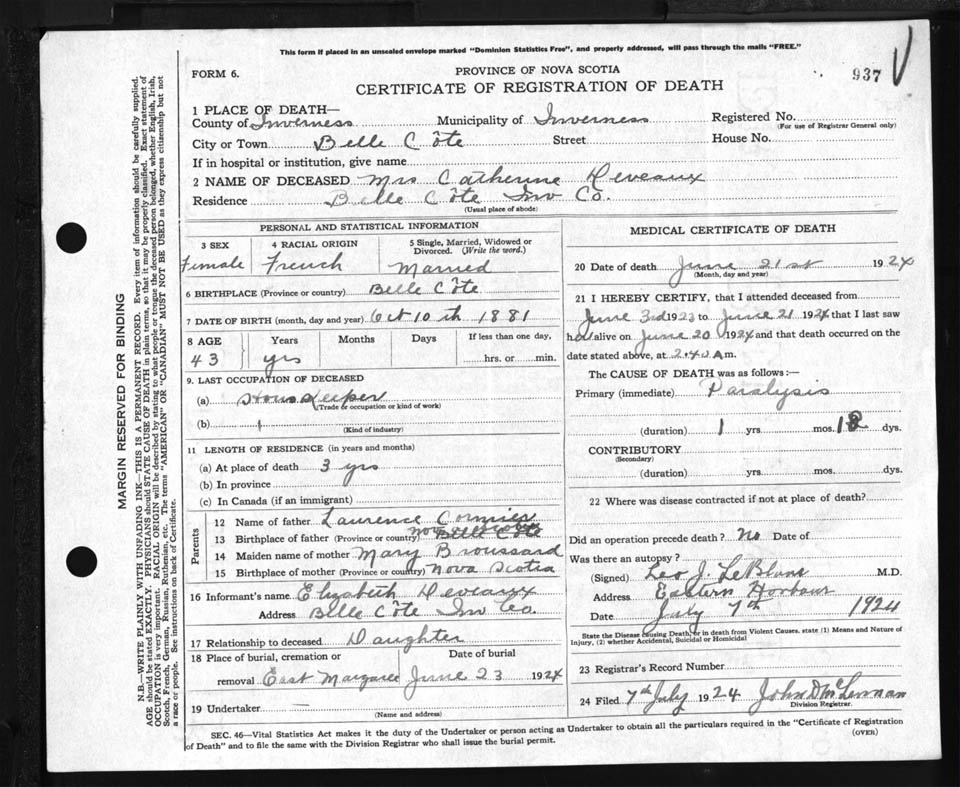 This form if placed in an unsealed envelope marked "Dominion Statistics Free", and properly addressed, will pass through the mails "FREE."
FORM 6.
PROVINCE OF NOVA SCOTIA
937
CERTIFICATE OF REGISTRATION OF DEATH
1 PLACE OF DEATH—
County of Inverness Municipality of Inverness Registered No.
(For use of Registrar General only)
City or Town Belle Côte Street House No.
If in hospital or institution, give name
2 NAME OF DECEASED Mrs Catherine Deveaux
Residence Belle Côte Inv Co.
(Usual place of abode)
PERSONAL AND STATISTICAL INFORMATION
3 SEX 4 RACIAL ORIGIN 5 Single, Married, Widowed or Divorced. (Write the word.)
Female French Married
6 BIRTHPLACE (Province or country) Belle Côte
7 DATE OF BIRTH (month, day and year) Oct 10th 1881
8 AGE Years Months Days If less than one day,
43 yrs hrs. or min.
9. LAST OCCUPATION OF DECEASED
(a) House Keeper
(Trade or occupation or kind of work)
(b)
(Kind of industry)
11 LENGTH OF RESIDENCE (in years and months)
(a) At place of death 3 yrs
(b) In province
(c) In Canada (if an immigrant)
Parents
12 Name of father Laurence Cormier
13 Birthplace of father (Province or country) Nova Scotia Belle Côte
14 Maiden name of mother Mary Broussard
15 Birthplace of mother (Province or country) Nova Scotia
16 Informant's name Elizabeth Deveaux
Address Belle Côte Inv Co.
17 Relationship to deceased Daughter
18 Place of burial, cremation or removal East Margaree Date of burial June 23 1924
19 Undertaker
(Name and address)
MEDICAL CERTIFICATE OF DEATH
20 Date of death June 21st 1924
(Month, day and year)
21 I HEREBY CERTIFY, that I attended deceased from
June 3rd 1923 to June 21 1924 that I last saw
her alive on June 20 1924 and that death occurred on the
date stated above, at 2.40 A.m.
The CAUSE OF DEATH was as follows:—
Primary (immediate) Paralysis
(duration) 1 yrs. mos. 18 dys.
CONTRIBUTORY
(Secondary)
(duration) yrs. mos. dys.
22 Where was disease contracted if not at place of death?
Did an operation precede death? No Date of
Was there an autopsy?
(Signed) Leo J. LeBlanc M.D.
Address Eastern Harbour
Date July 7th 1924
State the Disease causing Death, or in death from Violent Causes, state (1) Means and Nature of
Injury, (2) whether Accidental, Suicidal or Homicidal
23 Registrar's Record Number
24 Filed 7th July 1924 John D McLennan
Division Registrar.
SEC. 46—Vital Statistics Act makes it the duty of the Undertaker or person acting as Undertaker to obtain all the particulars required in the "Certificate of Registration
of Death" and to file the same with the Division Registrar who shall issue the burial permit.
(OVER)
MARGIN RESERVED FOR BINDING
N.B.—WRITE PLAINLY WITH UNFADING INK—THIS IS A PERMANENT RECORD. Every item of information should be carefully supplied.
AGE should be stated EXACTLY. PHYSICIANS should STATE CAUSE OF DEATH in plain terms, so that it may be properly classified. Exact statement of
OCCUPATION is very important. RACIAL ORIGIN will be described by stating to what people or tongue the deceased person belonged, whether English, Irish,
Scotch, French, German, Russian, Ruthenian, etc. The terms "AMERICAN" OR "CANADIAN" MUST NOT BE USED as they express citizenship but not
a race or people. See instructions on back of Certificate.